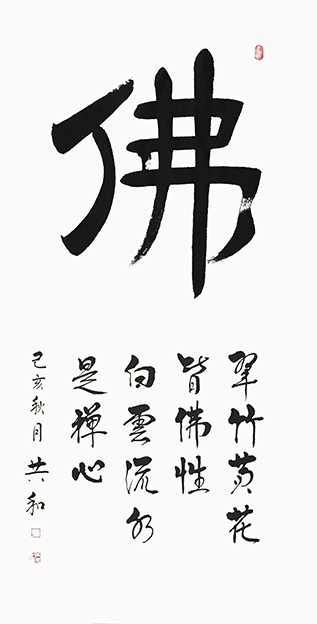 佛
翠竹黄花
皆佛性
白雲流水
是禅心
己亥秋月 共和